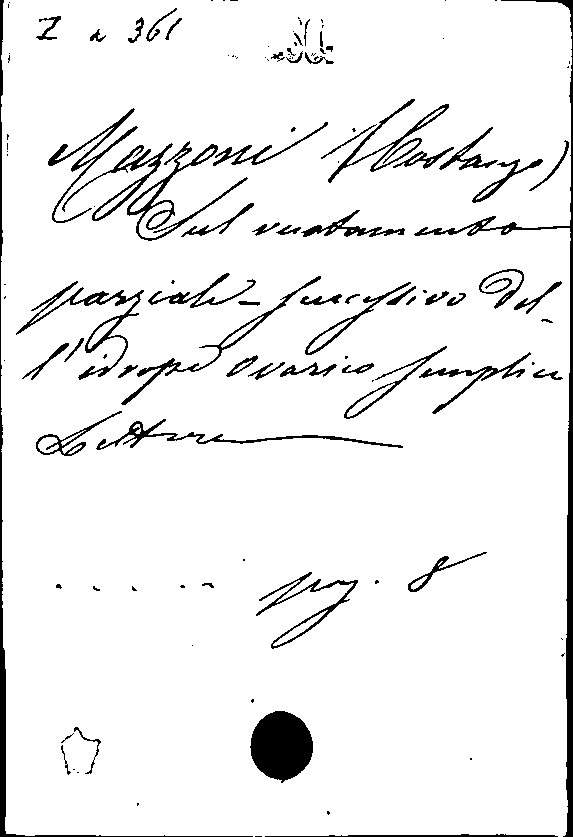 Z a 361
Mazzoni (Costanzo)
Sul vuotamento
parziale-successivo del-
l'idrope ovarico semplice
Lettura
..... pag. 8